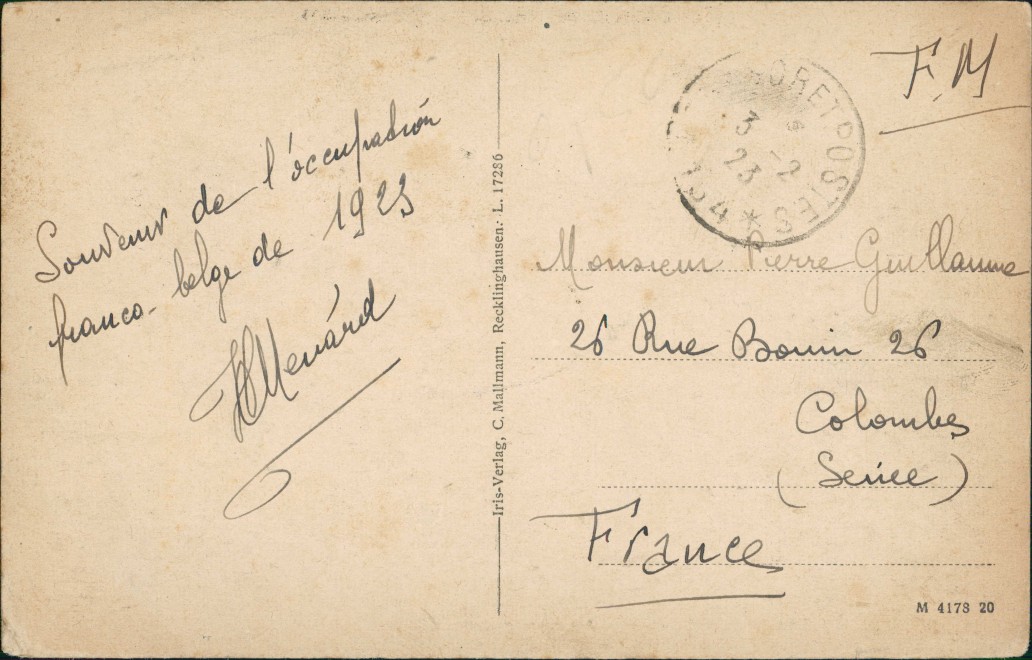 Souvenir de l'occupation
franco-belge de 1923
Menard
Iris-Verlag, C. Mallmann, Recklinghausen. L. 17286
F.M
TRESOR ET POSTES
3 - 2
23
* 134
Monsieur Pierre Guillaume
26 Rue Bouin 26
Colombes
(Seine)
France
M 4178 20